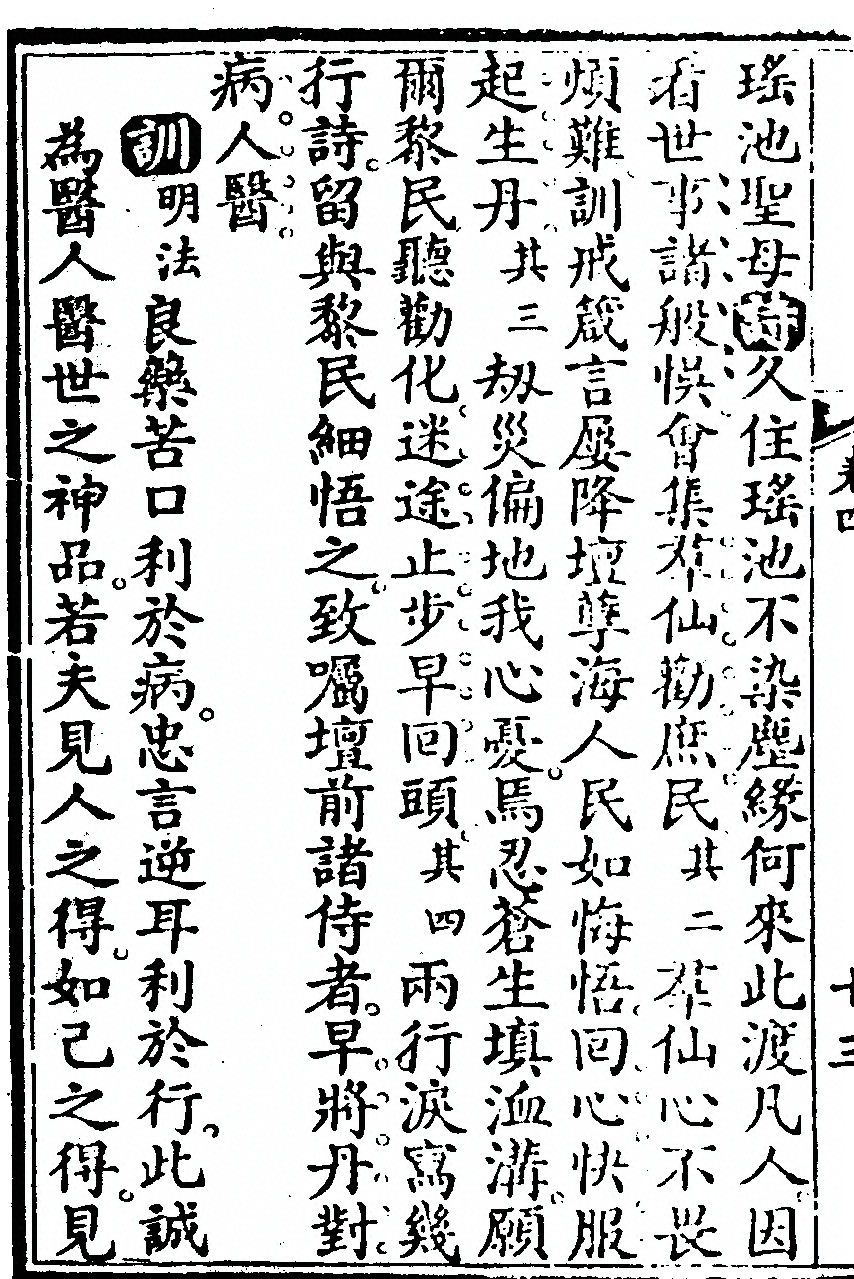 瑤池聖母詩久住瑤池不染塵緣何來此渡凡人因
看世事諸般悞會集羣仙勸庶民其二羣仙心不畏
煩難訓戒箴言屡降壇孽海人民如悔悟回心快服
起生丹其三刼災偏地我心憂焉忍蒼生填洫溝願
爾黎民聽勸化迷途止步早回頭其四兩行淚寫幾
行詩留與黎民細悟之致囑壇前諸侍者早將丹對
病人醫
訓明法良藥苦口利於病忠言逆耳利於行此誠
為醫人醫世之神品若夫見人之得如己之得見
卷四
十三